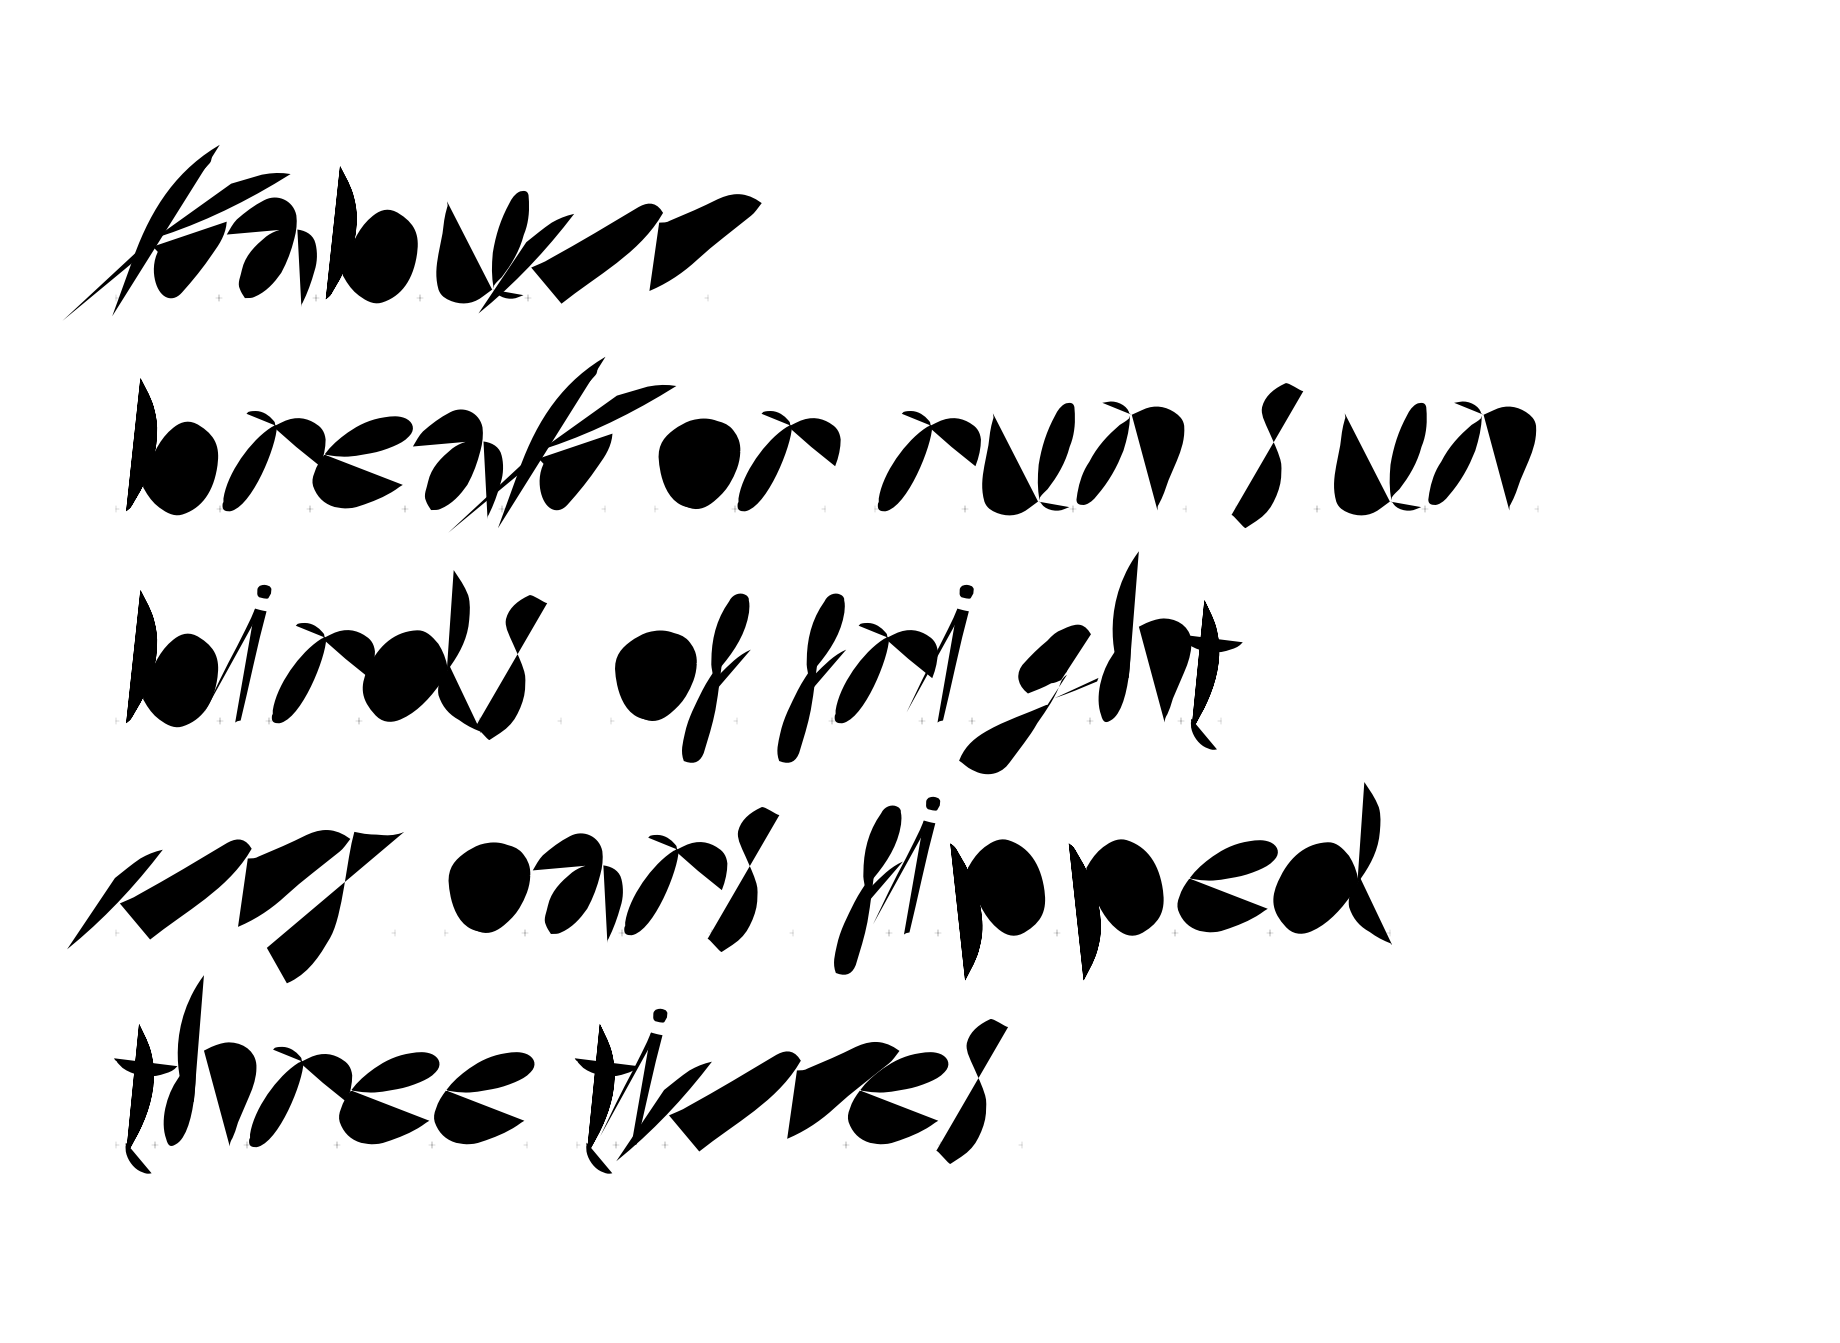 kabum
break or run sun
birds of fright
my oars fipped
three times